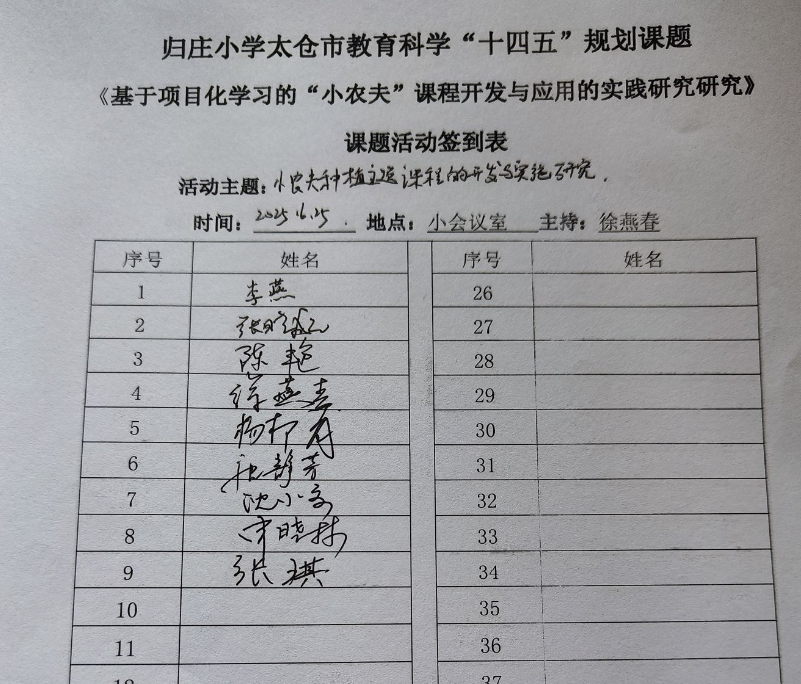 归庄小学太仓市教育科学“十四五”规划课题
《基于项目化学习的“小农夫”课程开发与应用的实践研究研究》
课题活动签到表
活动主题：小农夫种植主题课程的开发与实施研究.
时间：2025.6.25. 地点：小会议室 主持：徐燕春
序号 姓名 序号 姓名
1 李燕 26
2 27
3 陈艳 28
4 徐燕春 29
5 杨 30
6 静芳 31
7 沈小 32
8 晓 33
9 张琪 34
10 35
11 36
12 37